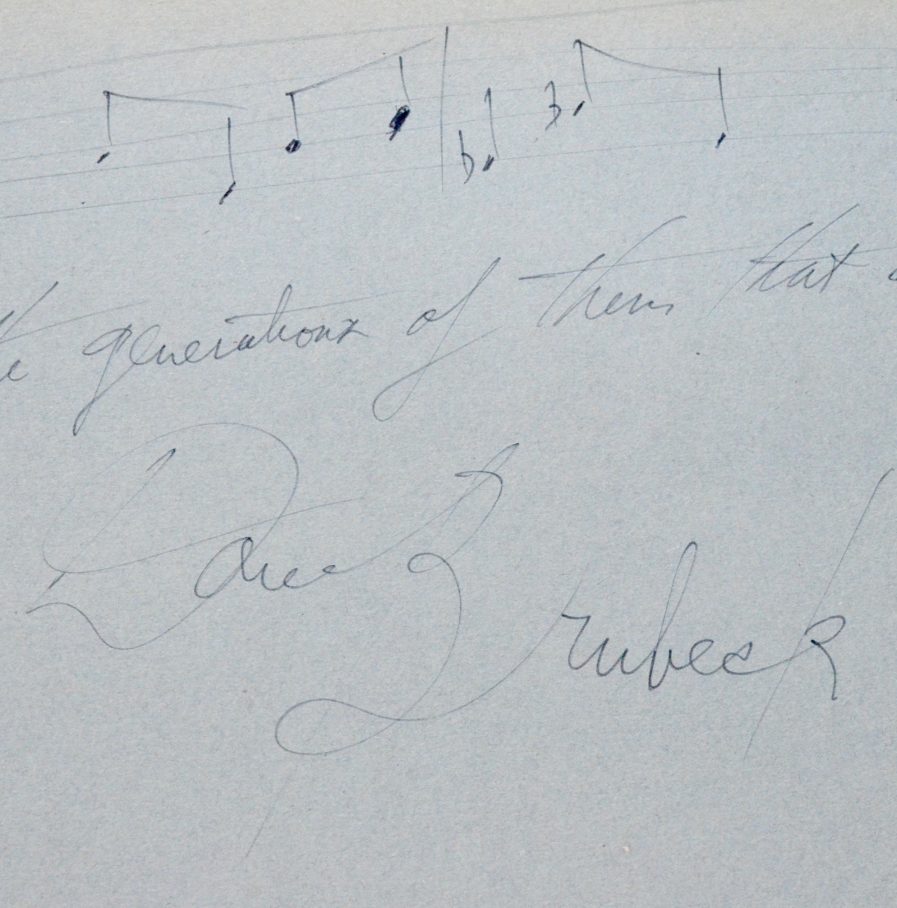 the generations of them that
Dave Brubeck